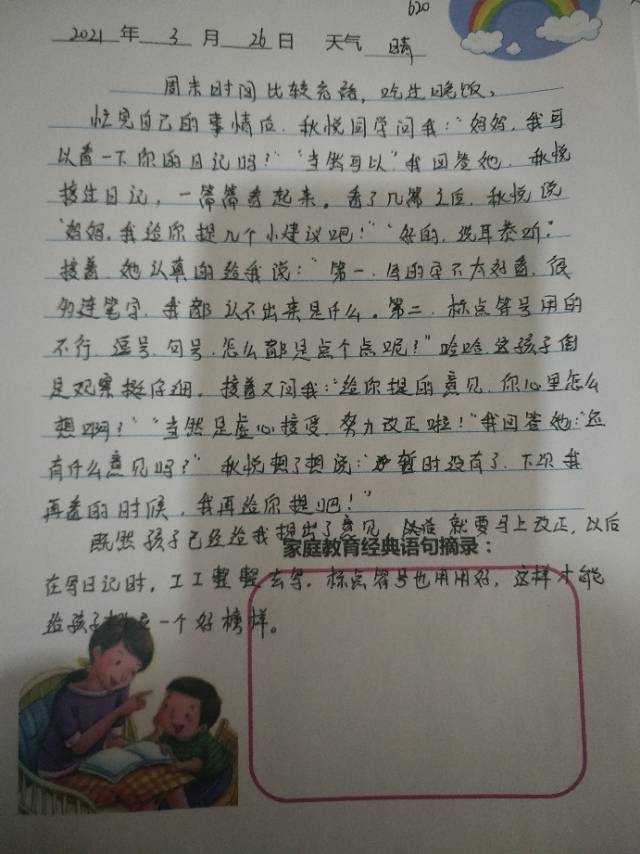 620
2021 年 3 月 26 日 天气 晴
周末时间比较充裕，吃过晚饭，
忙完自己的事情后，秋悦同学问我：“妈妈，我可
以看一下你的日记吗？”“当然可以”我回答她，秋悦
接过日记，一篇篇看起来。看了几篇之后，秋悦说
“妈妈，我给你提几个小建议吧！”“好的，洗耳恭听”
接着，她认真的给我说：“第一，写的字不太好看，很
多连笔字，我都认不出来是什么。第二，标点符号用的
不行，逗号，句号，怎么都是点个点呢？”哈哈，这孩子倒
是观察挺仔细。接着又问我：“给你提的意见，你心里怎么
想啊？”“当然是虚心接受，努力改正啦！”我回答她：“还
有什么意见吗？”秋悦想了想说：“暂时没有了，下次我
再看的时候，我再给你提吧！”
既然孩子已经给我提出了意见，就要马上改正，以后
家庭教育经典语句摘录：
在写日记时，工工整整去写，标点符号也用用好，这样才能
给孩子树立一个好榜样。